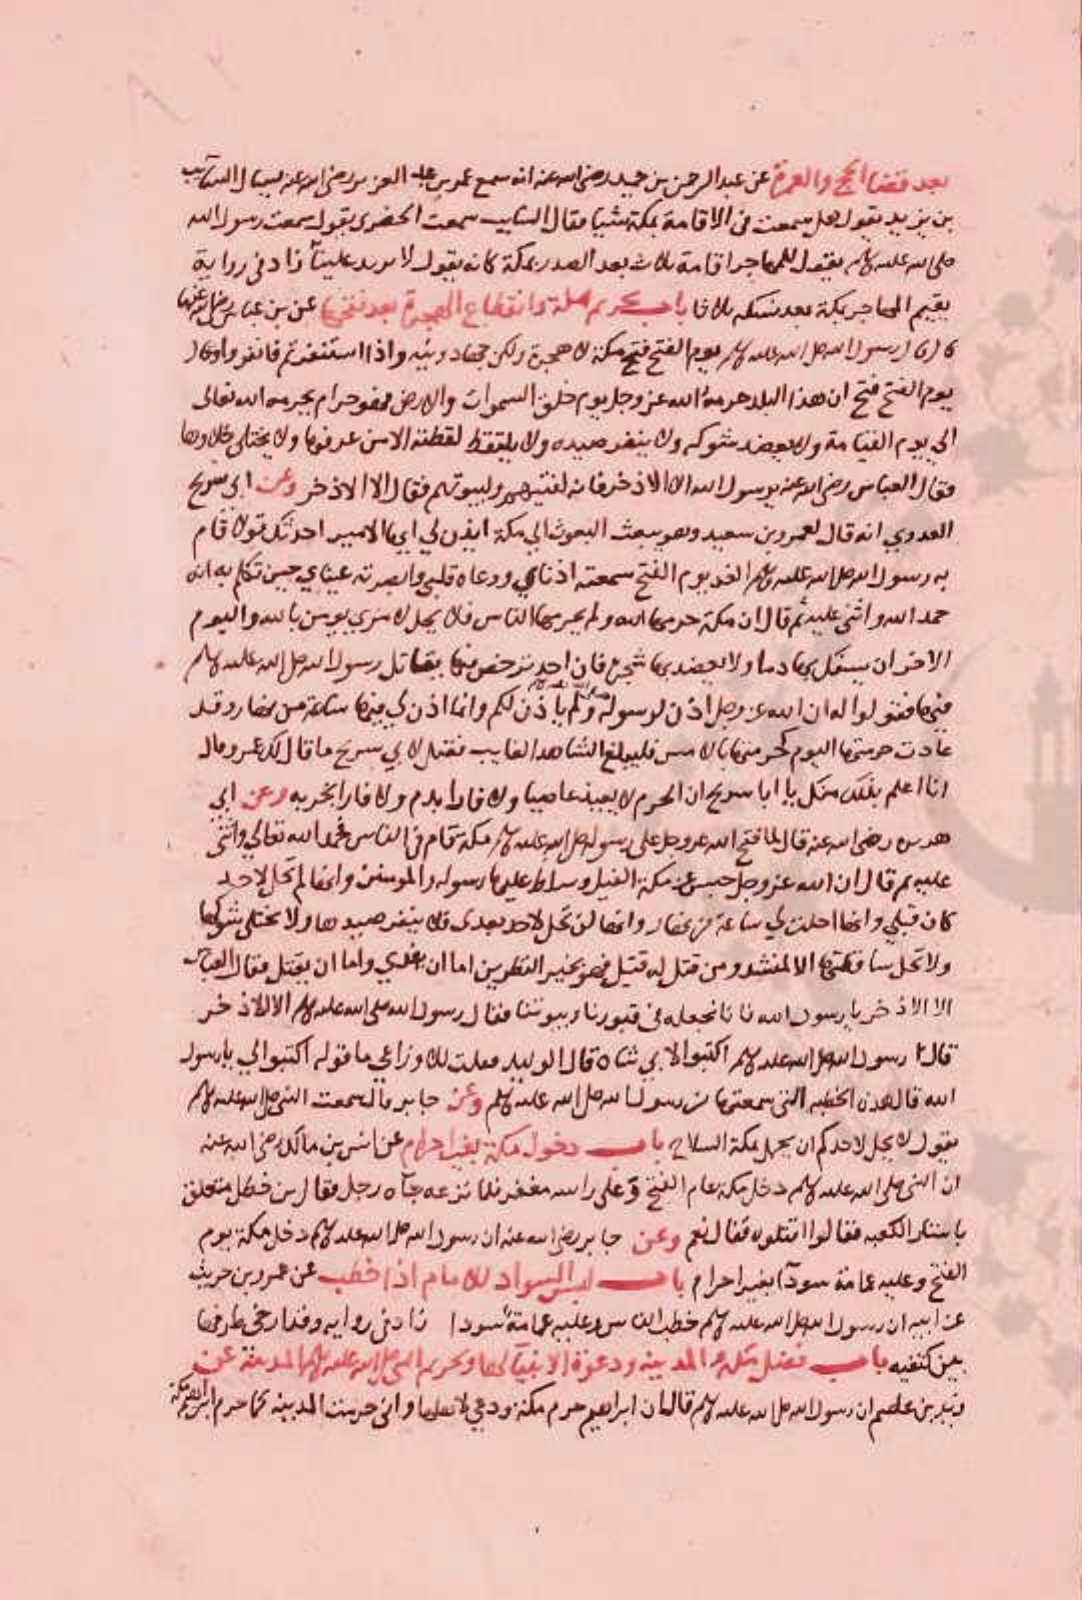 بعد قضا الحج والعمرة عن عبد الرحمن بن حميد رضي الله عنه انه سمع عمر بن عبد العزيز رضي الله عنه يسال السايب
بن يزيد يقول هل سمعت في الاقامة بمكة شيا فقال السايب سمعت الحضرمي يقول سمعت رسول الله
صلى الله عليه وسلم يقول للمهاجر اقامة ثلاث بعد الصدر بمكة كانه يقول لا يزيد عليها زاد في رواية
يقيم المهاجر بمكة بعد نسكه ثلاثا باب تحريم مكة وانقطاع الهجرة بعد فتحها عن بن عباس رضي الله عنهما
قال قال رسول الله صلى الله عليه وسلم يوم الفتح فتح مكة لا هجرة ولكن جهاد ونيه واذا استنفرتم فانفروا وقال
يوم الفتح فتح ان هذا البلد حرمه الله عز وجل يوم خلق السموات والارض فهو حرام بحرمه الله تعالى
الي يوم القيامة ولا يعضد شوكه ولا ينفر صيده ولا يلتقط لقطته الا من عرفها ولا يختلي خلاوها
فقال العباس رضي الله عنه يرسول الله الا الاذخر فانه لقينهم ولبيوتهم فقال الا الاذخر وعن ابي سريح
العدوي انه قال لعمرو بن سعيد وهو يبعث البعوث الي مكة ايذن لي ايها الامير احدثك قولا قام
به رسول الله صلى الله عليه وسلم الغد يوم الفتح سمعته اذناي ووعاه قلبي وابصرته عيناي حين تكلم به انه
حمد الله واثني عليه ثم قال ان مكة حرمها الله ولم يحرمها الناس فلا يحل لامري يومن بالله واليوم
الاخر ان يسفك بها دما ولا يعضد بها شجرة فان احد ترخص فيها بقتال رسول الله صلى الله عليه وسلم
فيها فقولوا له ان الله عز وجل اذن لرسوله ولم ياذن لكم وانما اذن لي فيها ساعة من نهار وقد
عادت حرمتها اليوم كحرمتها بالامس فليبلغ الشاهد الغايب فقيل لابي سريح ما قال لك عمرو قال
انا اعلم بذلك منك يا ابا سريح ان الحرم لا يعيذ عاصيا ولا فارا بدم ولا فارا بخربه وعن ابي
هريره رضي الله عنه قال لما فتح الله عز وجل على رسوله صلى الله عليه وسلم مكة قام في الناس فحمد الله تعالي واثني
عليه ثم قال ان الله عز وجل حبس عن مكة الفيل وسلط عليها رسوله والمومنين وانها لم تحل لاحد
كان قبلي وانها احلت لي ساعة من نهار وانها لن تحل لاحد بعدي فلا ينفر صيدها ولا يختلي شوكها
ولا تحل ساقطتها الا لمنشد ومن قتل له قتيل فهو بخير النظرين اما ان يفدي واما ان يقتل فقال العباس
الا الاذخر يا رسول الله فانا نجعله في قبورنا وبيوتنا فقال رسول الله صلى الله عليه وسلم الا الاذخر
قال رسول الله صلى الله عليه وسلم اكتبوا لابي شاه قال الوليد فقلت للاوزاعي ما قوله اكتبوا لي يا رسول
الله قال هذه الخطبه التي سمعتها من رسول الله صلى الله عليه وسلم وعن جابر قال سمعت النبي صلى الله عليه وسلم
يقول لا يحل لاحدكم ان يحمل بمكة السلاح باب دخول مكة بغير احرام عن انس بن مالك رضي الله عنه
ان النبي صلى الله عليه وسلم دخل مكة عام الفتح وعلى راسه مغفر فلما نزعه جآه رجل فقال بن خطل متعلق
باستار الكعبه فقالوا اقتلوه فقال نعم وعن جابر رضي الله عنه ان رسول الله صلى الله عليه وسلم دخل مكة يوم
الفتح وعليه عمامة سودآ بغير احرام باب لبس السواد للامام اذا خطب عن عمرو بن حريث
عن ابيه ان رسول الله صلى الله عليه وسلم خطب الناس وعليه عمامة سودا زاد في روايه وقد ارخى طرفها
بين كتفيه باب فضل مكة والمدينه ودعوة الانبيآ لها وتحريم النبي صلى الله عليه وسلم المدينة عن
بن عاصم ان رسول الله صلى الله عليه وسلم قال ان ابراهيم حرم مكة ودعي لاهلها واني حرمت المدينة كما حرم ابراهيم مكة